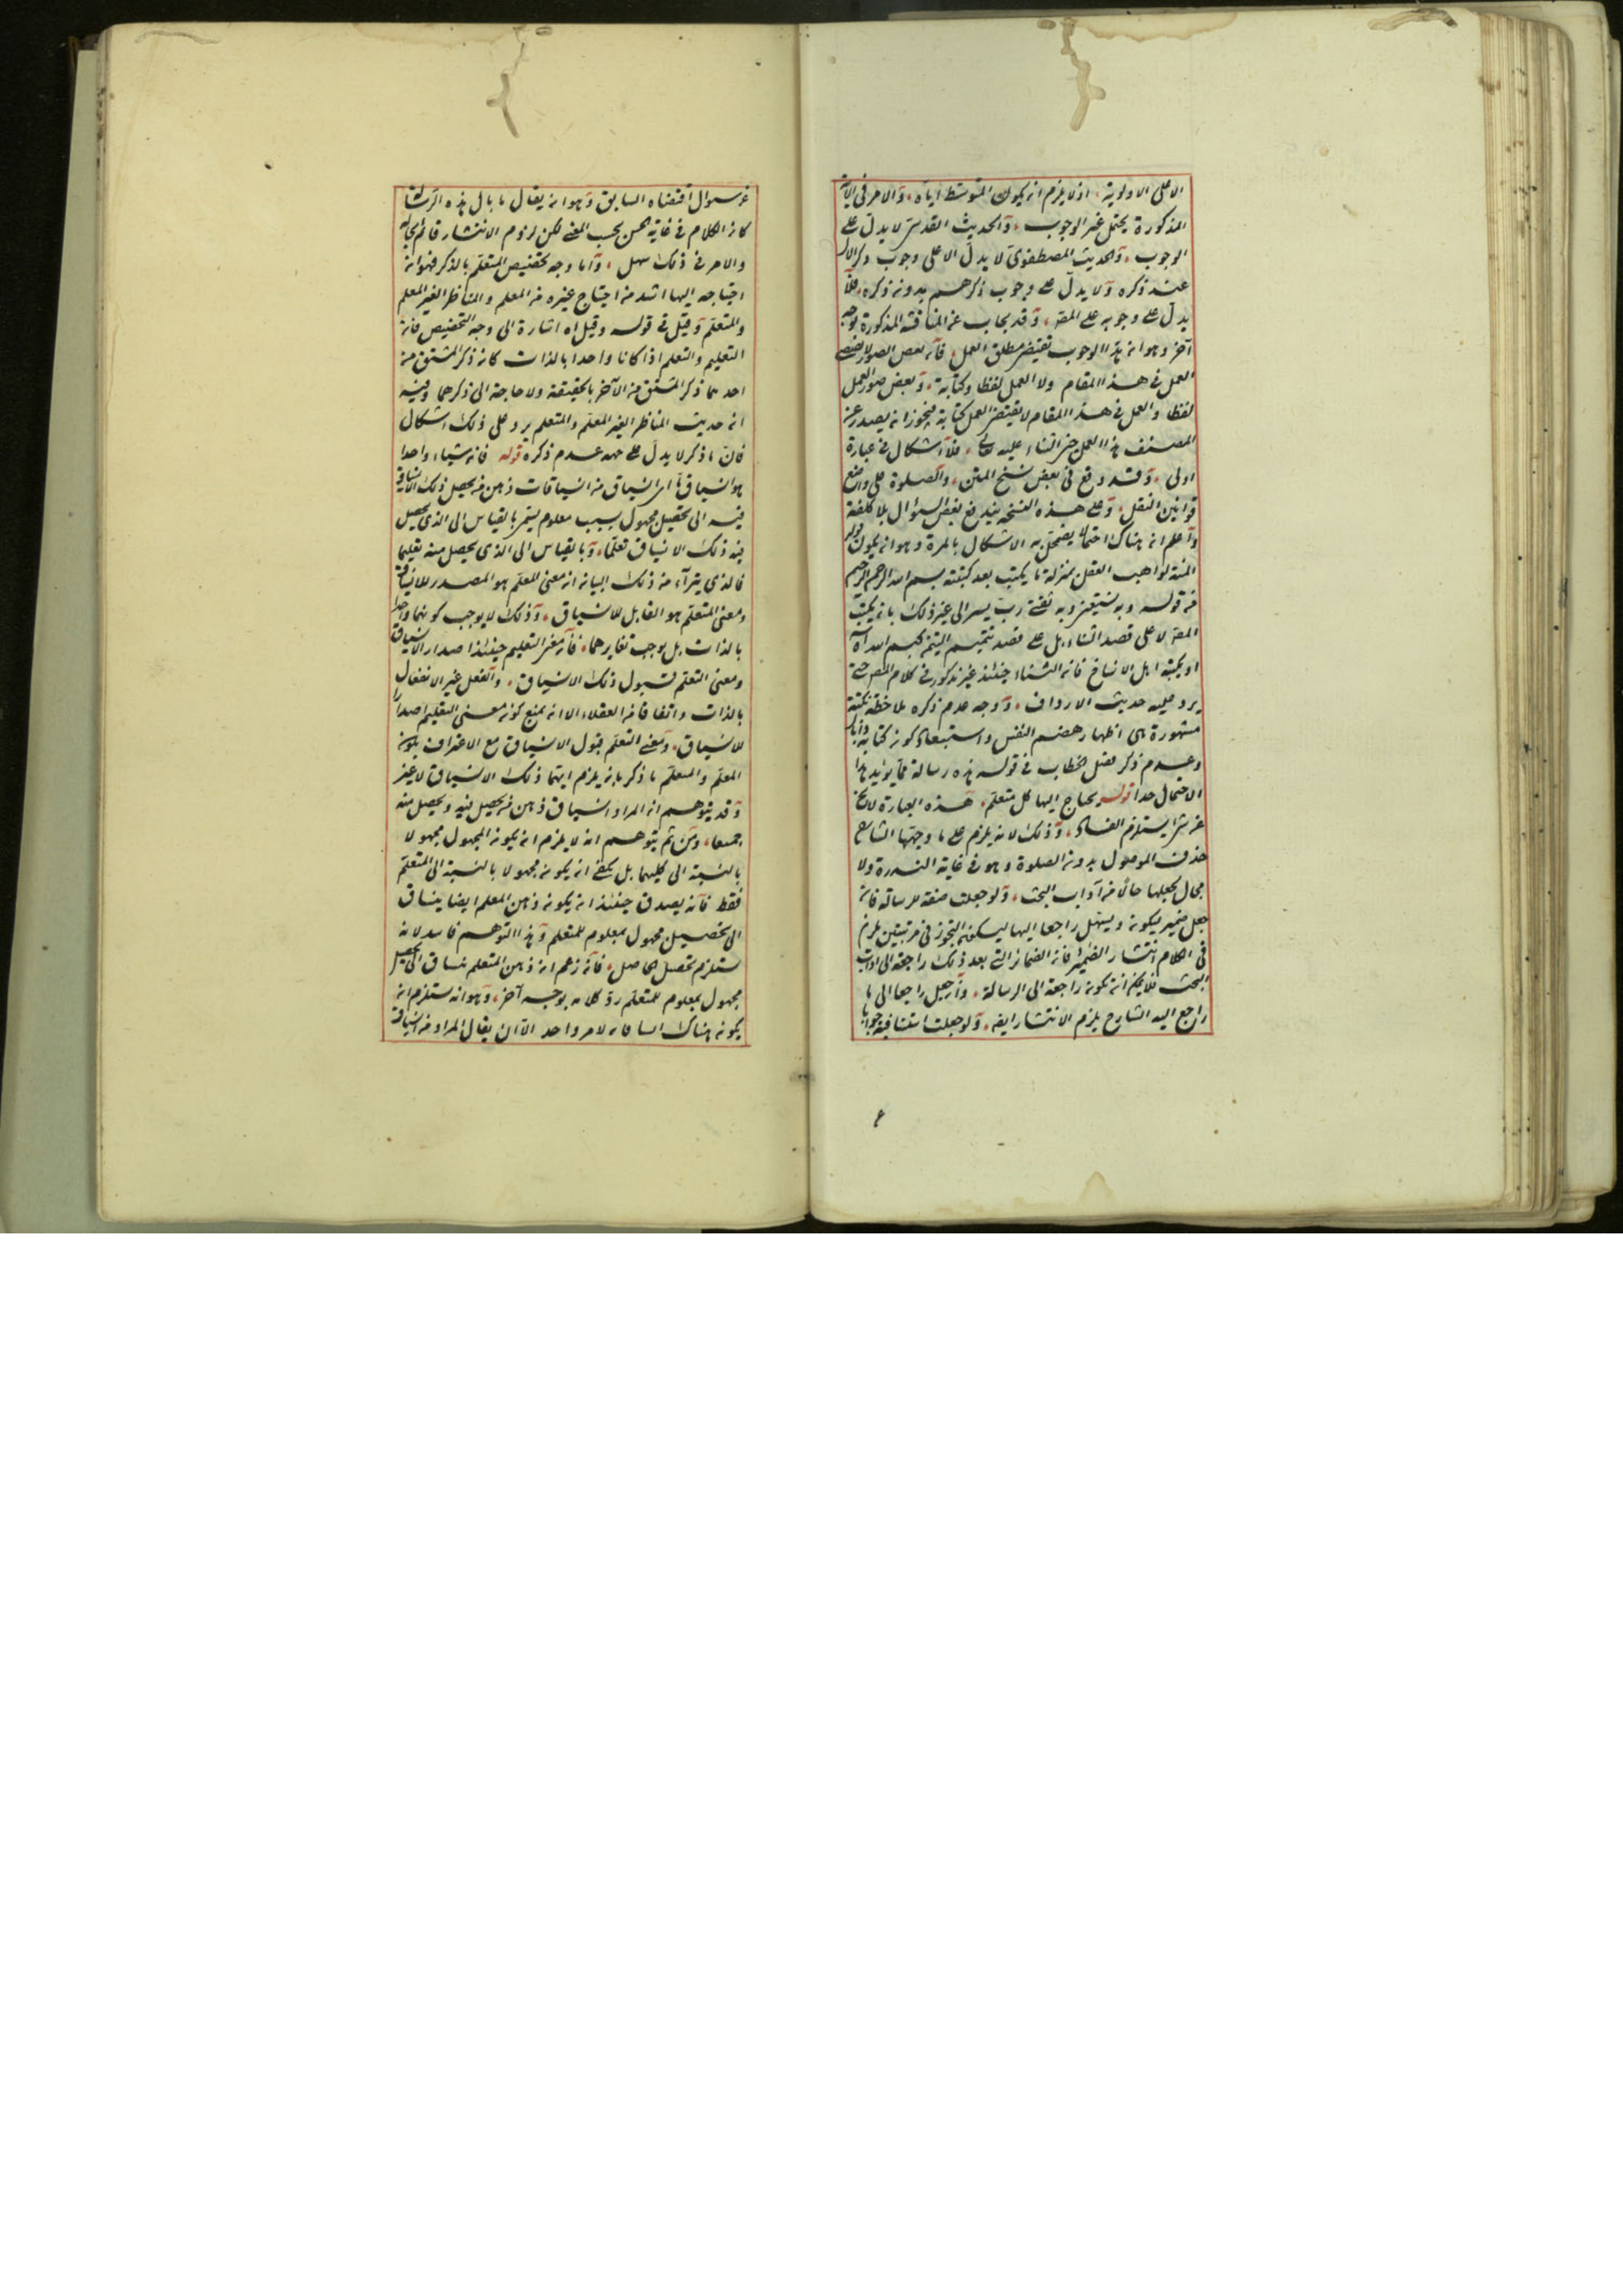 الا على الاولوية، اذ لا يلزم ان يكون المتوسط اياه، والامر فى الآية
المذكورة يحتمل غير الوجوب، والحديث القدسى لا يدل على
الوجوب، والحديث المصطفوى لا يدل الا على وجوب ذكر الال
عند ذكره ولا يدل على وجوب ذكرهم بدون ذكره، فلا
يدل على وجوبه على المصر، وقد يجاب عن المناقشة المذكورة بوجه
آخر وهو ان هذا الوجوب يقتضى مطلق العمل، فان بعض الصور لا يقتضى
العمل فى هذا المقام ولا العمل لفظا وكتابة، وبعض صور العمل
لفظا والعمل فى هذا المقام لا يقتضى العمل كتابة فيجوز ان يصدر عن
المصنف هذا العمل حين الثناء عليه تعالى، فلا اشكال فى عبارة
اولى، وقد وقع فى بعض نسخ المتن، والصلوة على واضع
قوانين النقل، وعلى هذه النسخة يندفع بعض السؤال بلا كلفة
واعلم ان هناك احتمالا يضمحل به الاشكال بالمرة وهو ان يكون قوله
المنة لواهب العقل بمنزلة ما يكتب بعد كتبته بسم الله الرحمن الرحيم
من قوله وبه نستعين وبه ثقتى رب يسر الى غير ذلك بان يكتب
المصر لا على قصد الثناء بل على قصد تتميم التيمن ببسم الله
او يكتبه اهل الانساخ فان الثناء حينئذ غير مذكور فى كلام المصر حتى
يرد عليه حديث الارداف، ووجه عدم ذكره ملاحظة نكتة
مشهورة هى اظهار هضم النفس واستبعاد كون كتابه ذا بال
وعدم ذكر فصل الخطاب فى قوله هذه رسالة مما يؤيد هذا
الاحتمال جدا قوله يحتاج اليها كل متعلم، هذه العبارة لا تخ
عن شئ يستلزم الفساد، وذلك لانه يلزم على ما وجهها الشارح
حذف الموصول بدون الصلوة وهو فى غاية الندرة ولا
مجال لجعلها حالا من آداب البحث، ولو جعلت صفة للرسالة فان
جعل ضمير يكونه ويسهل راجعا اليها ليسكون التجوز فى مرتبتين يلزم
فى الكلام انتشار الضمير فان الضمائر التى بعد ذلك راجعة الى اداب
البحث فلا يمكن ان تكون راجعة الى الرسالة، وان جعل راجعا الى ما
راجع اليه الشارح يلزم الانتشار ايضا، ولو جعلت استئنافية جوابا
عن سؤال اقتضاه السابق وهو ان يقال ما بال هذه الرسالة
كان الكلام فى غاية الحسن بحسب المعنى لكن لزوم الانتشار قائم بحاله
والامر فى ذلك سهل، واما وجه تخصيص المتعلم بالذكر فهو ان
احتياجه اليها اشد من احتياج غيره من المعلم والمناظر الغير المعلم
والمتعلم وقيل فى قوله وقيل اه اشارة الى وجه التخصيص فان
التعليم والتعلم اذا كانا واحدا بالذات كان ذكر المشتق من
احدهما ذكر المشتق من الآخر بالحقيقة ولا حاجة الى ذكرهما وفيه
ان حديث المناظر الغير المعلم والمتعلم يرد على ذلك اشكال
فان ما ذكر لا يدل على جهة عدم ذكره قوله فان شياء واحدا
هو انسياق ما اى انسياق من انسياقات ذهن من يحصل ذلك الانسياق
فيه الى تحصيل مجهول بسبب معلوم يسمى بالقياس الى الذى يحصل
فيه ذلك الانسياق تعلما، وبالقياس الى الذى يحصل منه تعليما
فالذى يتراء من ذلك البيان ان معنى المعلم هو المصدر للانسياق
ومعنى المتعلم هو القابل للانسياق، وذلك لا يوجب كونهما واحدا
بالذات بل يوجب تغايرهما، فان معنى التعليم حينئذ اصدار الانسياق
ومعنى التعلم قبول ذلك الانسياق، والفعل غير الانفعال
بالذات واتفاقا من العقلاء الا ان يمنع كون معنى التعليم اصدار
للانسياق، ومعنى التعلم قبول الانسياق مع الاعتراف بكون
المعلم والمتعلم ما ذكر بان يلزم ايتما ذلك الانسياق لا غير
وقد يتوهم ان المراد انسياق ذهن من يحصل فيه ويحصل منه
جمعا، ومن ثم يتوهم انه لا يلزم ان يكون المجهول مجهولا
بالنسبة الى كليهما بل يكفى ان يكون مجهولا بالنسبة الى المتعلم
فقط فانه يصدق حينئذ ان يكون ذهن المعلم ايضا ينساق
الى تحصيل مجهول بمعلوم للمتعلم وهذا التوهم فاسد لانه
يستلزم تحصيل الحاصل، فان زعم ان ذهن المتعلم منساق الى تحصيل
مجهول بمعلوم للمتعلم رد كلامه بوجه آخر، وهو انه يستلزم ان
يكون هناك انسياقان لامر واحد الا ان يقال المراد من انسياق